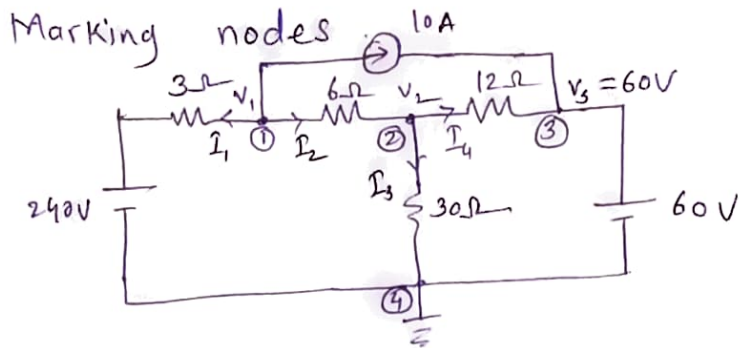 Marking nodes
10A
3Ω V₁ 6Ω V₂ 12Ω V₃ = 60V
I₁ ① I₂ ② I₄ ③
240V I₃ 30Ω 60V
④